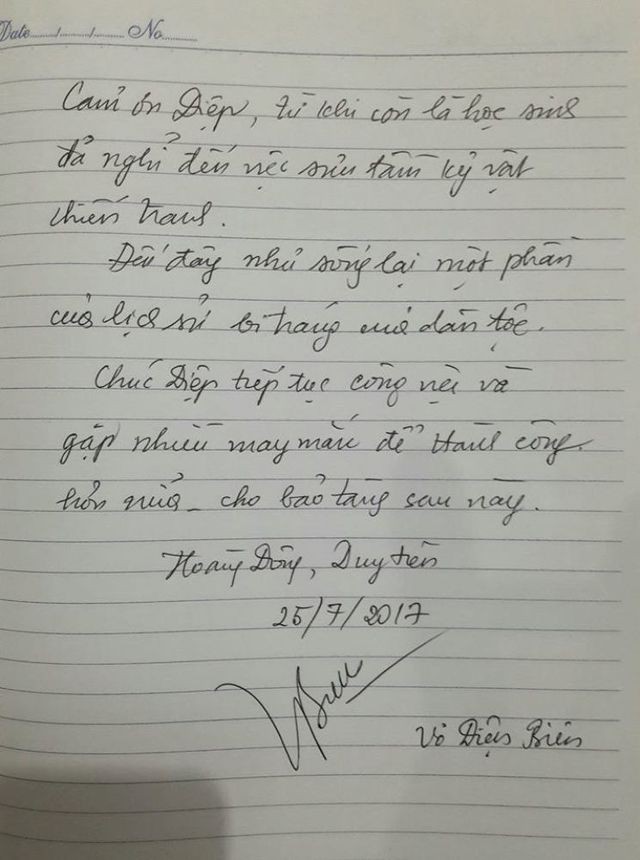 Date....../....../...... No..........
Cảm ơn Diệp, từ khi còn là học sinh
đã nghĩ đến việc sưu tầm kỷ vật
chiến tranh.
Đến đây như sống lại một phần
của lịch sử bi tráng của dân tộc.
Chúc Diệp tiếp tục công việc và
gặp nhiều may mắn để thành công
hơn nữa - cho bảo tàng sau này.
Hoàng Đông, Duy tiên
25/7/2017
Võ Điện Biên